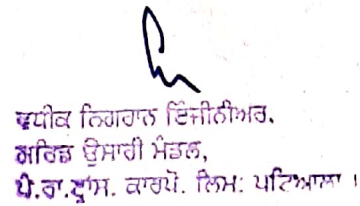 ਵਧੀਕ ਨਿਗਰਾਨ ਇੰਜੀਨੀਅਰ,
ਗਰਿਡ ਉਸਾਰੀ ਮੰਡਲ,
ਪੰ.ਰਾ.ਟ੍ਰਾਂਸ. ਕਾਰਪੋ. ਲਿਮ: ਪਟਿਆਲਾ ।